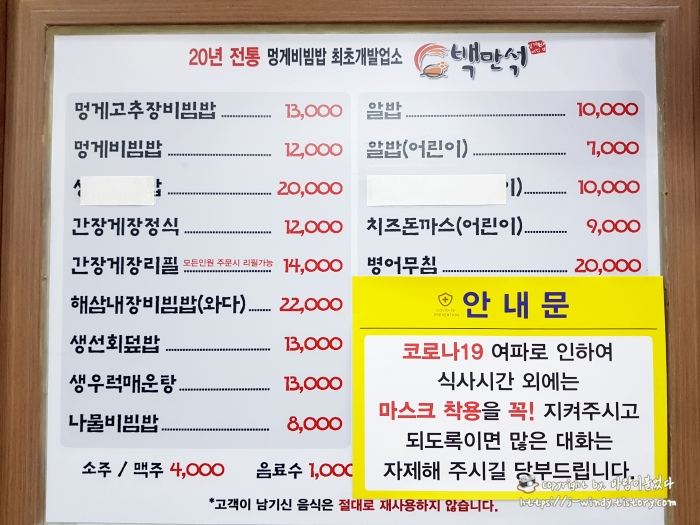 20년 전통 멍게비빔밥 최초개발업소 백만석
멍게고추장비빔밥 13,000
멍게비빔밥 12,000
20,000
간장게장정식 12,000
간장게장리필 모든인원 주문시 리필가능 14,000
해삼내장비빔밥(와다) 22,000
생선회덮밥 13,000
생우럭매운탕 13,000
나물비빔밥 8,000
알밥 10,000
알밥(어린이) 7,000
10,000
치즈돈까스(어린이) 9,000
병어무침 20,000
소주 / 맥주 4,000 음료수 1,000
*고객이 남기신 음식은 절대로 재사용하지 않습니다.
COVID-19
PREVENTION
안내문
코로나19 여파로 인하여
식사시간 외에는
마스크 착용을 꼭! 지켜주시고
되도록이면 많은 대화는
자제해 주시길 당부드립니다.
copyright by. 바람이불었다
https://i-windy.tistory.com